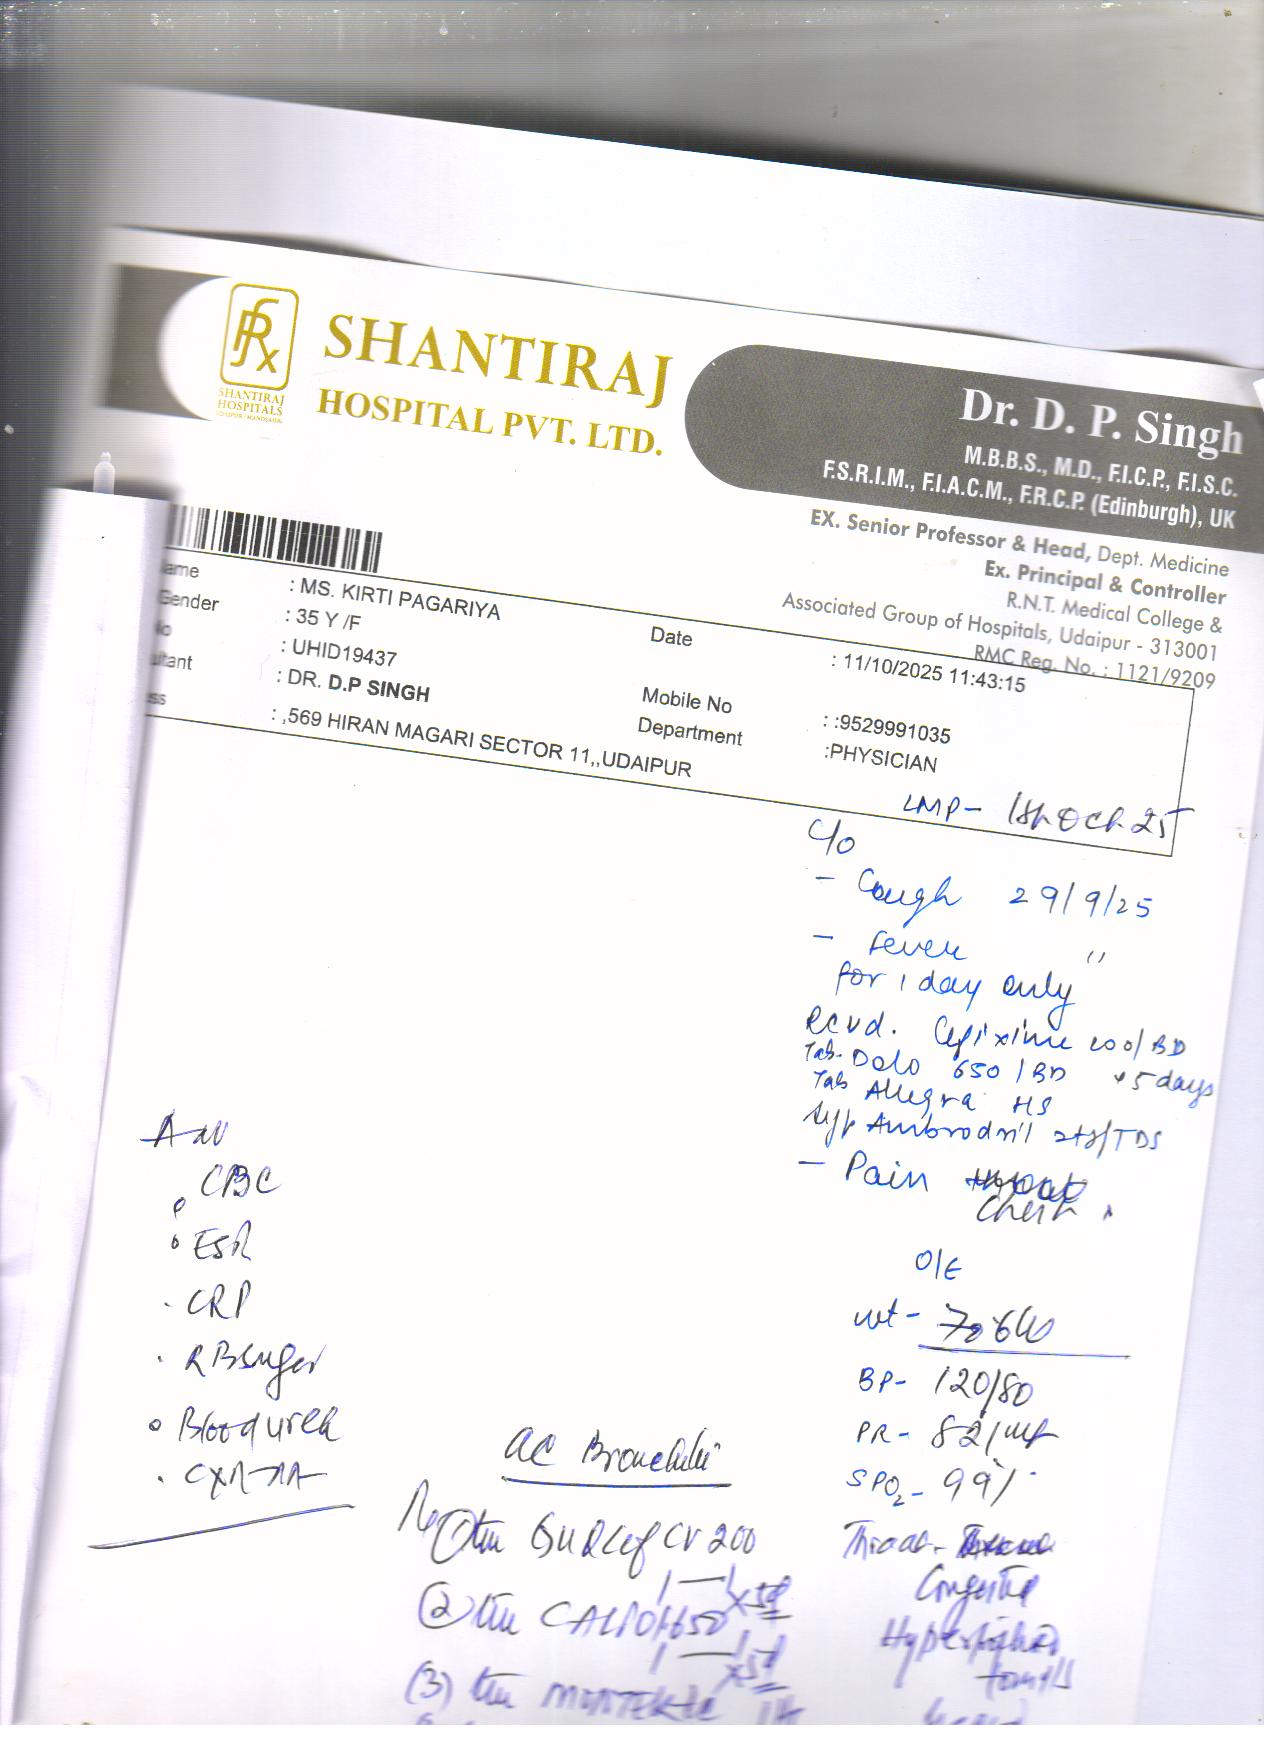 SHANTIRAJ
HOSPITAL PVT. LTD.
SHANTIRAJ
HOSPITALS
Dr. D. P. Singh
M.B.B.S., M.D., F.I.C.P., F.I.S.C.
F.S.R.I.M., F.I.A.C.M., F.R.C.P. (Edinburgh), UK
EX. Senior Professor & Head, Dept. Medicine
Ex. Principal & Controller
R.N.T. Medical College &
Associated Group of Hospitals, Udaipur - 313001
RMC Reg. No. : 1121/9209
ame : MS. KIRTI PAGARIYA
Gender : 35 Y /F
Date : 11/10/2025 11:43:15
No : UHID19437
ultant : DR. D.P SINGH
Mobile No : :9529991035
ss : ,569 HIRAN MAGARI SECTOR 11,,UDAIPUR
Department :PHYSICIAN
LMP- Oct 25
C/o
- Cough 29/9/25
- Fever "
for 1 day only
Rcvd. Cefixime 200/BD
Tab. Dolo 650/BD x 5 days
Tab Allegra HS
Syp Ambrodril 2ts/TDS
- Pain throat
Chest
O/E
wt-
BP- 120/80
PR- 82/m
SPO2- 99%
Throat-
Congested
tonsils
Adv
CBC
ESR
CRP
R B Sugar
Blood urea
CXR-PA
AC Bronchitis
Rx
① CV 200
1-1 x5d
② CALPOL 650
1-1 x5d
(3)